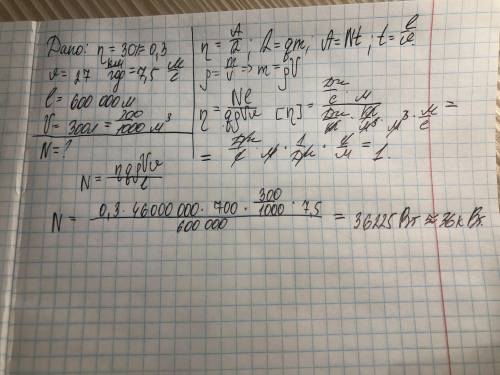 Дано: η = 30% = 0,3
v = 27 км/год = 7,5 м/с
l = 600 000 м
V = 300 л = 300/1000 м³
N = ?
N = ηqρVv/l
η = A/Q; Q = qm; A = Nt; t = l/v
ρ = m/V => m = ρV
η = Nl/qρVv [η] = (Дж/с · м)/(Дж/кг · кг/м³ · м³ · м/с) =
= Дж/с · м · 1/Дж · с/м = 1.
N = (0,3 · 46000 000 · 700 · 300/1000 · 7,5)/600 000 = 36225 Вт ≈ 36 кВт.